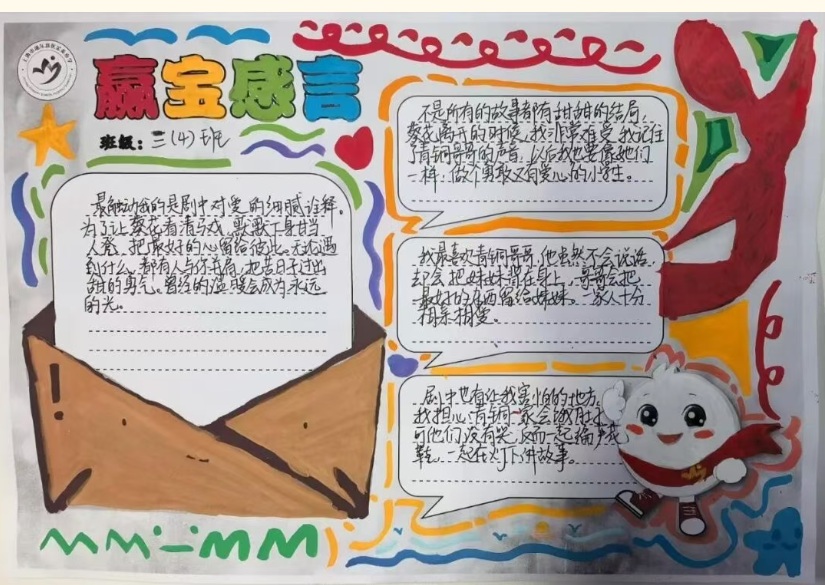 赢宝感言
班级：三(4)班
最触动我的是剧中对爱的细腻诠释。
为了让葵花看清马戏，哥哥
人凳，把最好的心留给彼此。无论遇
到什么，都有人与你并肩，把苦日子过出
甜的勇气。曾经的温暖会成为永远
的光。
不是所有的故事都有甜甜的结局，
葵花离开的时候，我非常难受，我记住
了青铜哥哥的声音，以后我也要像她们
一样，做个勇敢又有爱心的小学生。
我最喜欢青铜哥哥，他虽然不会说话，
却会把妹妹背在身上，哥哥会把
最好的东西留给妹妹。一家人十分
相亲相爱。
剧中也有让我害怕的地方，
我担心青铜一家会饿肚子
可他们没有哭，反而一起编芦花
鞋，一起在灯下讲故事。